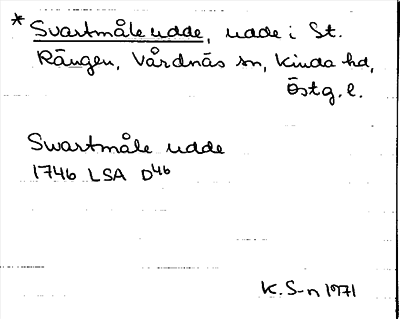 * Svartmåle udde, udde i St.
Rängen, Vårdnäs sn, Kinda hd,
Östg. l.
Swartmåle udde
1746 LSA D46
K. S-n 1971